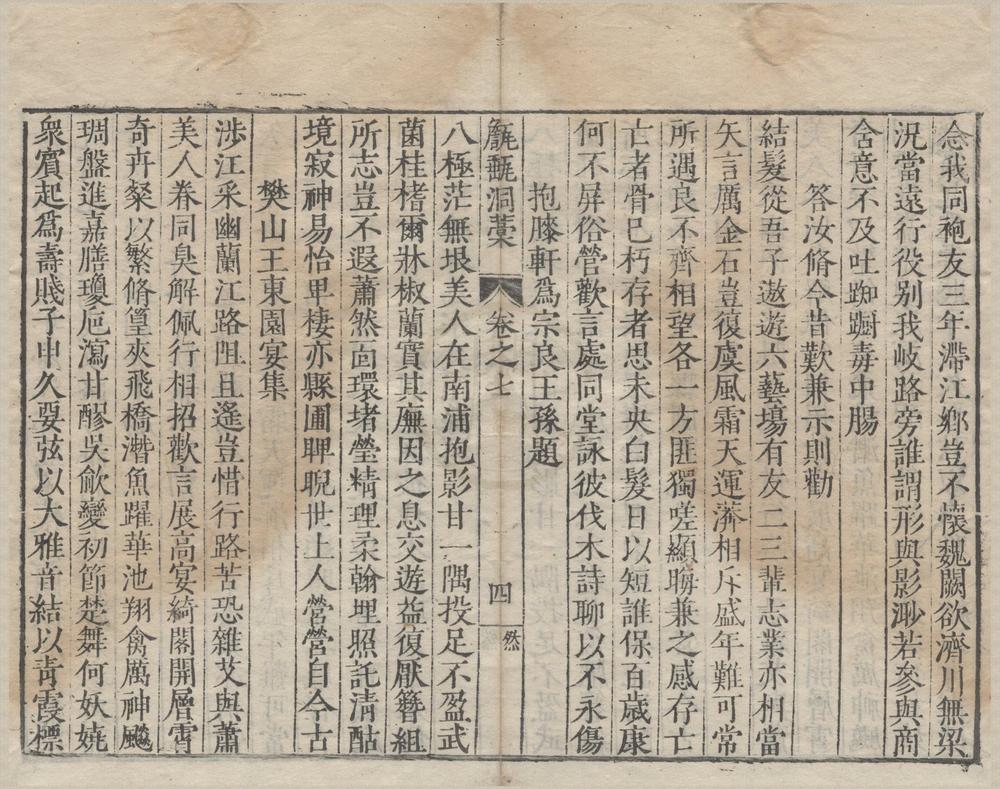 念我同袍友三年滯江鄉豈不懷魏闕欲濟川無梁
況當遠行役別我岐路旁誰謂形與影渺若參與商
舍意不及吐踟躕毒中腸
答汝脩今昔歎兼示則勸
結髮從吾子遨遊六藝場有友二三輩志業亦相當
矢言厲金石豈復虞風霜天運濟相斥盛年難可常
所遇良不齊相望各一方匪獨嗟顯晦兼之感存亡
亡者骨已朽存者思未央白髮日以短誰保百歲康
何不屏俗營歡言處同堂詠彼伐木詩聊以不永傷
抱膝軒爲宗良王孫題
甔甀洞藁
卷之七
四
然
八極茫無垠美人在南浦抱影甘一隅投足不盈武
菌桂楮爾牀椒蘭實其廡因之息交遊益復厭簪組
所志豈不遐蕭然面環堵瑩精理柔翰埋照託清酤
境寂神易怡卑棲亦縣圃睥睨世上人營營自今古
樊山王東園宴集
涉江采幽蘭江路阻且遙豈惜行路苦恐雜艾與蕭
美人眷同臭解佩行相招歡言展高宴綺閣開層霄
奇卉粲以繁脩篁夾飛橋潛魚躍華池翔禽厲神飈
琱盤進嘉膳瓊卮瀉甘醪吳歈變初節楚舞何妖嬈
衆賓起爲壽賤子申久要弦以大雅音結以靑霞標